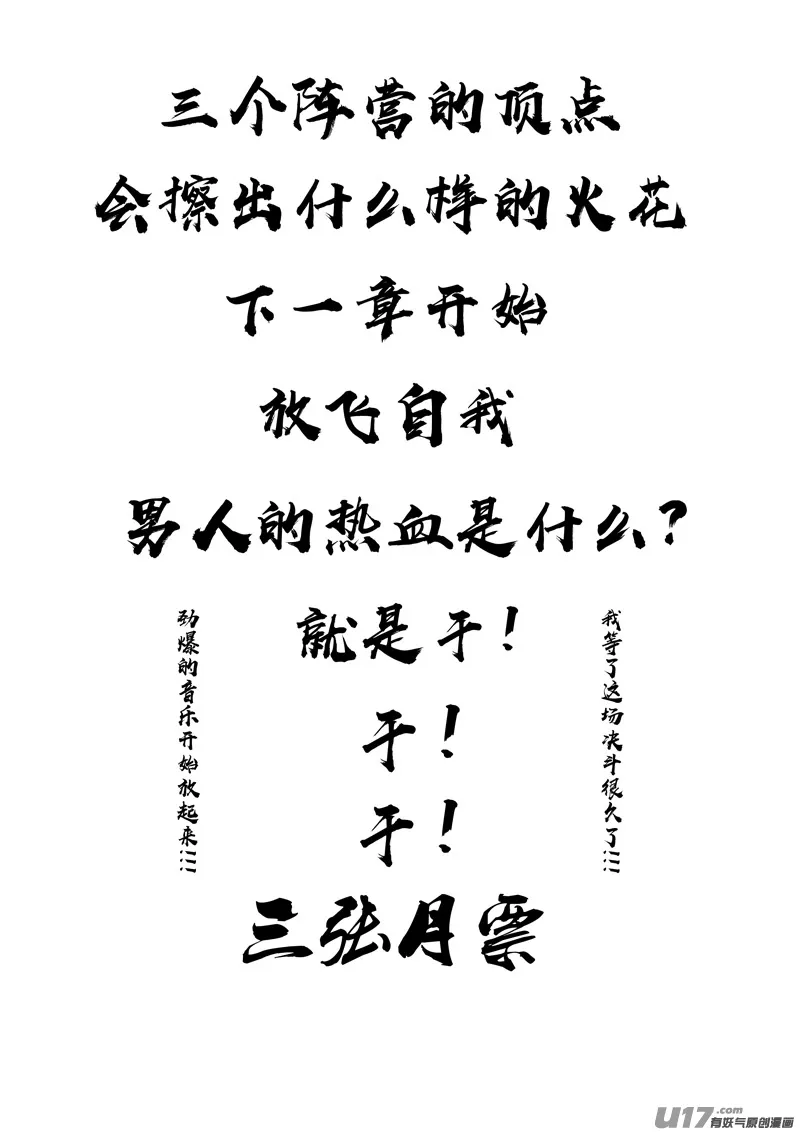 三个阵营的顶点
会擦出什么样的火花
下一章开始
放飞自我
男人的热血是什么？
就是干！
干！
干！
三张月票
劲爆的音乐开始放起来!!!
我等了这场决斗很久了!!!
U17.com
有妖气原创漫画